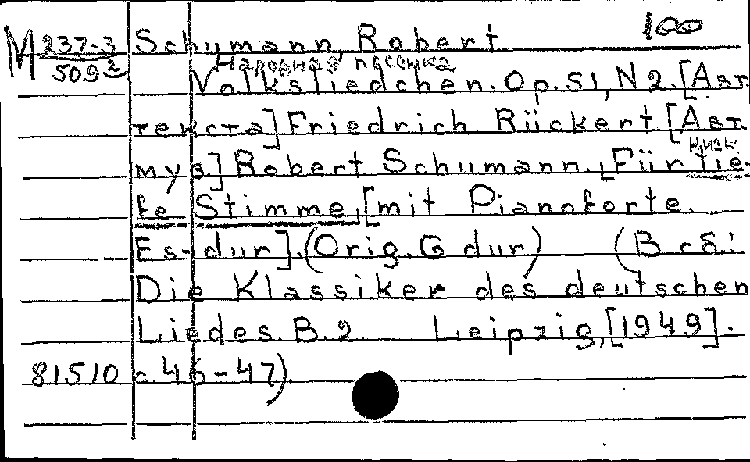 100
M 237-3 Schumann, Robert
509 2 Народная песенка
Volksliedchen. Op. 51, N 2. [Авт.
текста] Friedrich Rückert [Авт.
низк.
муз] Robert Schumann. [Für tie-
fe Stimme, [mit Pianoforte.
Es-dur]. (Orig. G dur) (В сб:
Die Klassiker des deutschen
Liedes. B. 2 Leipzig, [1949].
81510 с. 46-47)